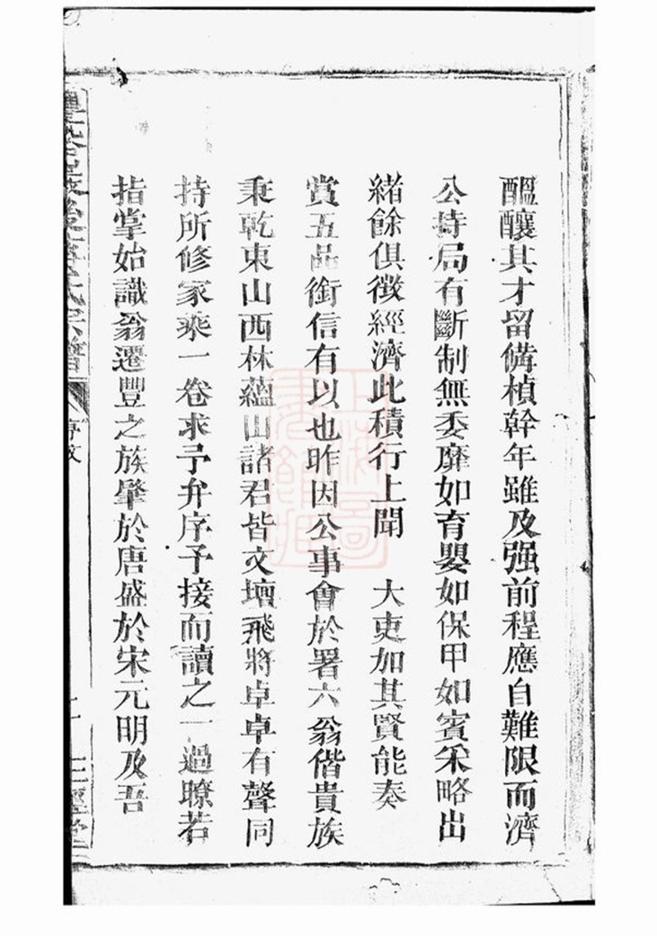 醞釀其才留備楨幹年雖及强前程應自難限而濟
公持局有斷制無委靡如育嬰如保甲如賓采略出
緒餘俱徵經濟此積行上聞 大吏加其賢能奏
賞五品銜信有以也昨因公事會於署六翁偕貴族
秉乾東山西林蘊山諸君皆文壇飛將卓卓有聲同
持所修家乘一卷求予弁序予接而讀之一過瞭若
指掌始識翁遷豐之族肇於唐盛於宋元明及吾
氏宗譜
序文
三經堂